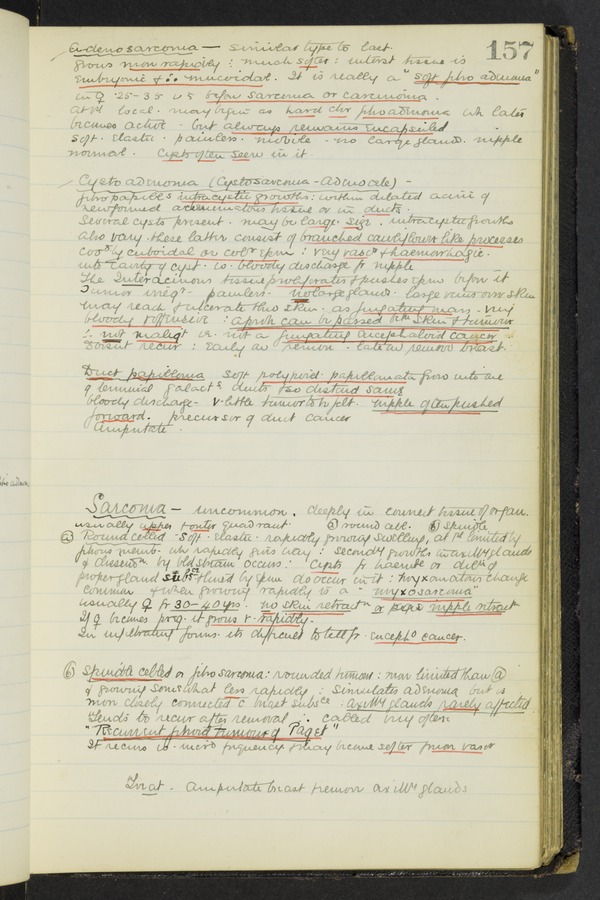 157
Adenosarcoma — similar type to last.
Grows more rapidly : much softer : interst tissue is
Embryonic & ∴ mucoidal. It is really a "soft fibro adenoma"
in ♀ 25-35 before sarcoma or carcinoma.
At 1st local. may begin as hard chr fibroadenoma wh later
becomes active - but always remains encapsuled
Soft. Elastic. painless. mobile - no large glands. nipple
normal. Cysts often seen in it
Cysto adenoma (Cystosarcoma - Adenocele) -
fibro papill intracystic growths: within dilated acini of
newformed tissue or in ducts.
Several cysts present. may be large size. intracystic growths
also vary. these latter consist of branched cauliflower like processes
by cuboidal or col epm : very vasc & haemorrhagic.
into cavity of cyst. is bloody discharge fr nipple
The Interacinous tissue proliferates & pushes epm before it
Tumour irreg - painless. no large glands. large veins over skin
may reach & ulcerate thro skin; as fungating mass. very
bloody & offensive : a probe can be passed skin & tumour
∴ not malig is not a fungating encephaloid cancer
Doesnt recur : early on remove - late on remove breast.
Duct papilloma soft polypoid papillomata grow into one
of terminal galact ducts & so distend same
bloody discharge - v. little tumour to be felt. nipple often pushed
forward. precursor of duct cancer
Amputate.
Sarcoma — uncommon. deeply in connect tissue of organ.
usually upper & outer quadrant. (a) round cell. (b) spindle
(a) Round celled Soft. elastic. rapidly growing swelling, at 1st limited by
fibrous memb. wh rapidly gives way : second growths in axill glands
& dissem by bld stream occurs : Cysts fr haemorr or dil of
proper gland subs lined by epm do occur in it : myxomatous change
common & when growing rapidly is a "myxosarcoma"
usually ♀ fr 30-40 yrs. no skin retract or nipple retract
If ♀ becomes preg. it grows v. rapidly.
In infiltrating forms its difficult to tell fr. enceph cancer.
(b) Spindle celled or fibro sarcoma: rounded tumour: more limited than (a)
& growing somewhat less rapidly : Simulates adenoma but is
more closely connected c breast subs : axill glands rarely affected
Tends to recur after removal ∴ called very often
"Recurrent fibroid tumour of Paget"
It recurs c more frequency & may become softer & more vascr
Treat. Amputate breast & remove axill glands